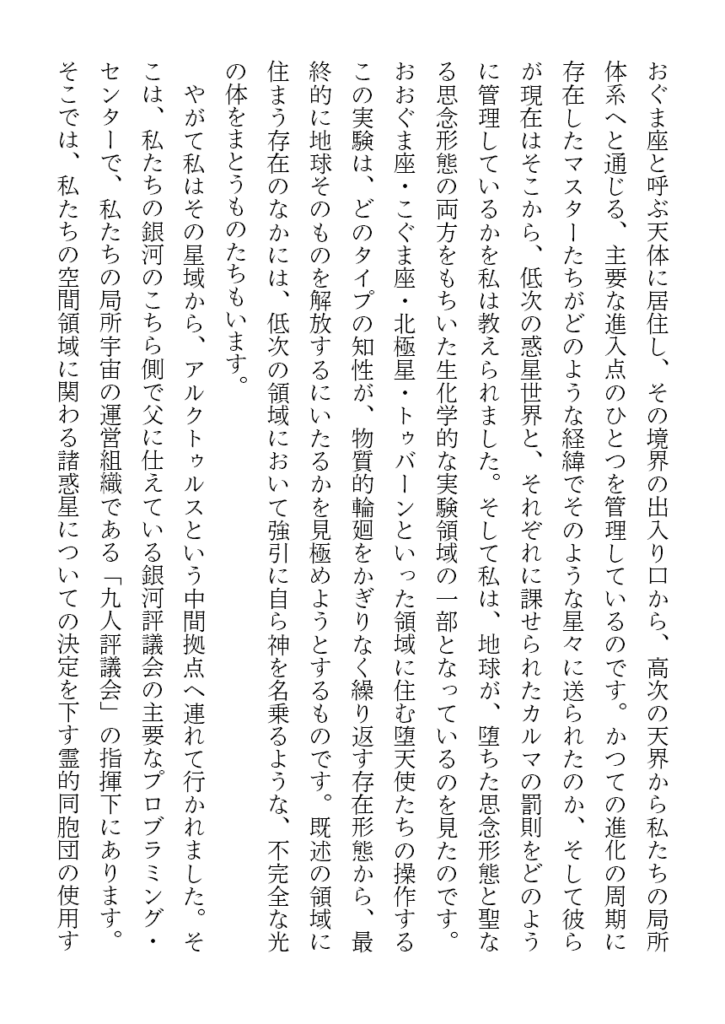 おぐま座と呼ぶ天体に居住し、その境界の出入り口から、高次の天界から私たちの局所
体系へと通じる、主要な進入点のひとつを管理しているのです。かつての進化の周期に
存在したマスターたちがどのような経緯でそのような星々に送られたのか、そして彼ら
が現在はそこから、低次の惑星世界と、それぞれに課せられたカルマの罰則をどのよう
に管理しているかを私は教えられました。そして私は、地球が、堕ちた思念形態と聖な
る思念形態の両方をもちいた生化学的な実験領域の一部となっているのを見たのです。
おおぐま座・こぐま座・北極星・トゥバーンといった領域に住む堕天使たちの操作する
この実験は、どのタイプの知性が、物質的輪廻をかぎりなく繰り返す存在形態から、最
終的に地球そのものを解放するにいたるかを見極めようとするものです。既述の領域に
住まう存在のなかには、低次の領域において強引に自ら神を名乗るような、不完全な光
の体をまとうものたちもいます。
　やがて私はその星域から、アルクトゥルスという中間拠点へ連れて行かれました。そ
こは、私たちの銀河のこちら側で父に仕えている銀河評議会の主要なプロブラミング・
センターで、私たちの局所宇宙の運営組織である「九人評議会」の指揮下にあります。
そこでは、私たちの空間領域に関わる諸惑星についての決定を下す霊的同胞団の使用す